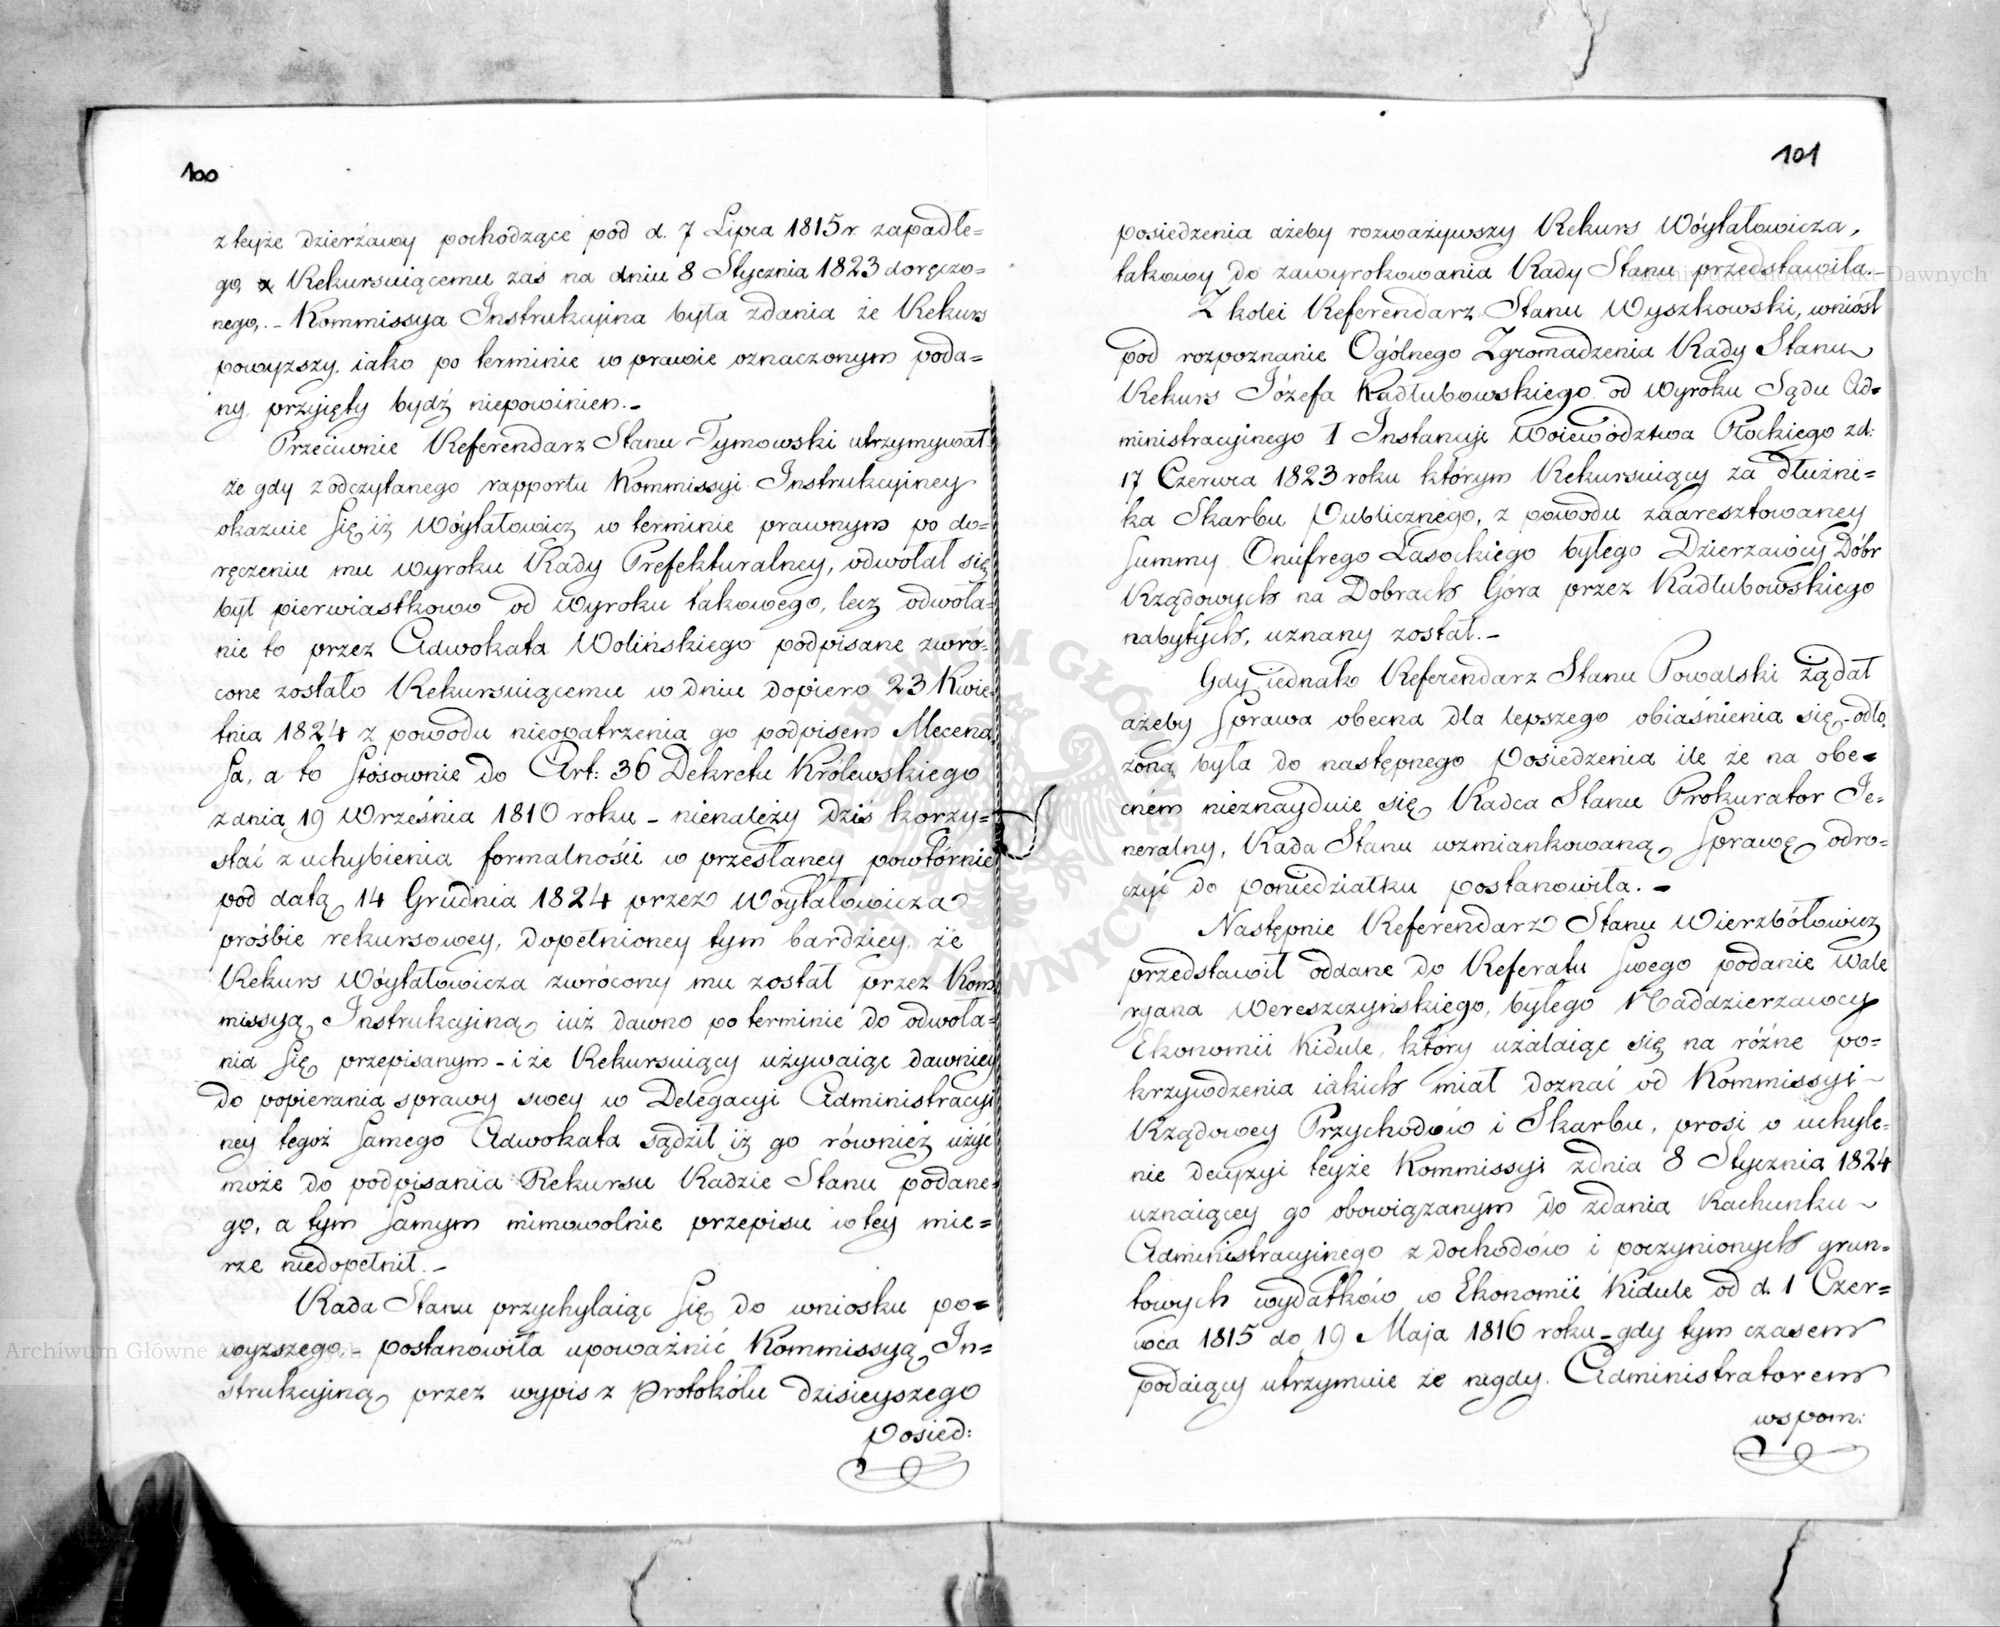 100
z teyże dzierżawy pochodzące pod d. 7 Lipca 1815 r. zapadłe=
go, a Rekursuiącemu zaś na dniu 8 Stycznia 1823 doręczo=
nego,.- Kommissya Instrukcyina była zdania że Rekurs
powyższy, iako po terminie w prawie oznaczonym poda=
ny, przyięty bydź niepowinien.-
Przeciwnie Referendarz Stanu Tymowski utrzymywał
że gdy z odczytanego rapportu Kommissyi Instrukcyiney
okazuie się iż Wóytałowicz w terminie prawnym po do=
ręczeniu mu wyroku Rady Prefekturalney, odwołał się
był pierwiastkowo od Wyroku takowego, lecz odwoła=
nie to przez Adwokata Wolińskiego podpisane zwró=
cone zostało Rekursuiącemu w dniu dopiero 23 Kwie=
tnia 1824 z powodu nieopatrzenia go podpisem Mecena
sa, a to stósownie do Art: 36 Dekretu Królewskiego
z dnia 19 Września 1810 roku - nienależy dziś korzy=
stać z uchybienia formalności w przesłaney powtórnie
pod datą 14 Grudnia 1824 przez Wóytałowicza
prośbie rekursowey, dopełnioney tym bardziey, że
Rekurs Wóytałowicza zwrócony mu został przez Kom
missyą Instrukcyiną, iuż dawno po terminie do odwoła=
nia się przepisanym - i że Rekursuiący używaiąc dawniey
do popierania sprawy swey w Delegacyi Administracyi
ney tegoż samego Adwokata sądził iż go również użyć
może do podpisania Rekursu Radzie Stanu podane=
go, a tym samym mimowolnie przepisu w tey mie=
rze niedopełnił.-
Rada Stanu przychylaiąc się do wniosku po=
wyższego,- postanowiła upoważnić Kommissyą In=
strukcyiną przez wypis z Protokółu dzisieyszego
posied:
101
posiedzenia ażeby rozważywszy Rekurs Wóytałowicza,
takowy do zawyrokowania Rady Stanu przedstawiła.-
Z kolei Referendarz Stanu Wyszkowski, wniósł
pod rozpoznanie Ogólnego Zgromadzenia Rady Stanu
Rekurs Józefa Kadłubowskiego od Wyroku Sądu Ad=
ministracyinego I Instancyi Woiewództwa Płockiego z d:
17 Czerwca 1823 roku którym Rekursuiący za dłużni=
ka Skarbu Publicznego, z powodu zaaresztowaney
Summy Onufrego Lasockiego byłego Dzierzawcy Dóbr
Rządowych na Dobrach Góra przez Kadłubowskiego
nabytych, uznany został.-
Gdy iednak Referendarz Stanu Powalski żądał
ażeby sprawa obecna dla lepszego obiaśnienia się odło
żoną była do następnego Posiedzenia ile że na obe=
cném nieznayduie się Radca Stanu Prokurator Je=
neralny, Rada Stanu wzmiankowaną Sprawę odro=
czyć do poniedziałku postanowiła.-
Następnie Referendarz Stanu Wierzbółowicz
przedstawił oddane do Referatu swego podanie Wale
ryana Wereszczyńskiego, byłego Naddzierzawcy
Ekonomii Kidule, który użalaiąc się na różne po=
krzywdzenia iakich miał doznać od Kommissyi
Rządowey Przychodów i Skarbu, prosi o uchyle=
nie decyzyi teyże Kommissyi z dnia 8 Stycznia 1824
uznaiącey go obowiązanym do zdania Rachunku
Administracyinego z dochodów i poczynionych grun=
towych wydatków w Ekonomii Kidule od d. 1 Czer=
wca 1815 do 19 Maja 1816 roku - gdy tym czasem
podaiący utrzymuie że nigdy Administratorem
wspom: